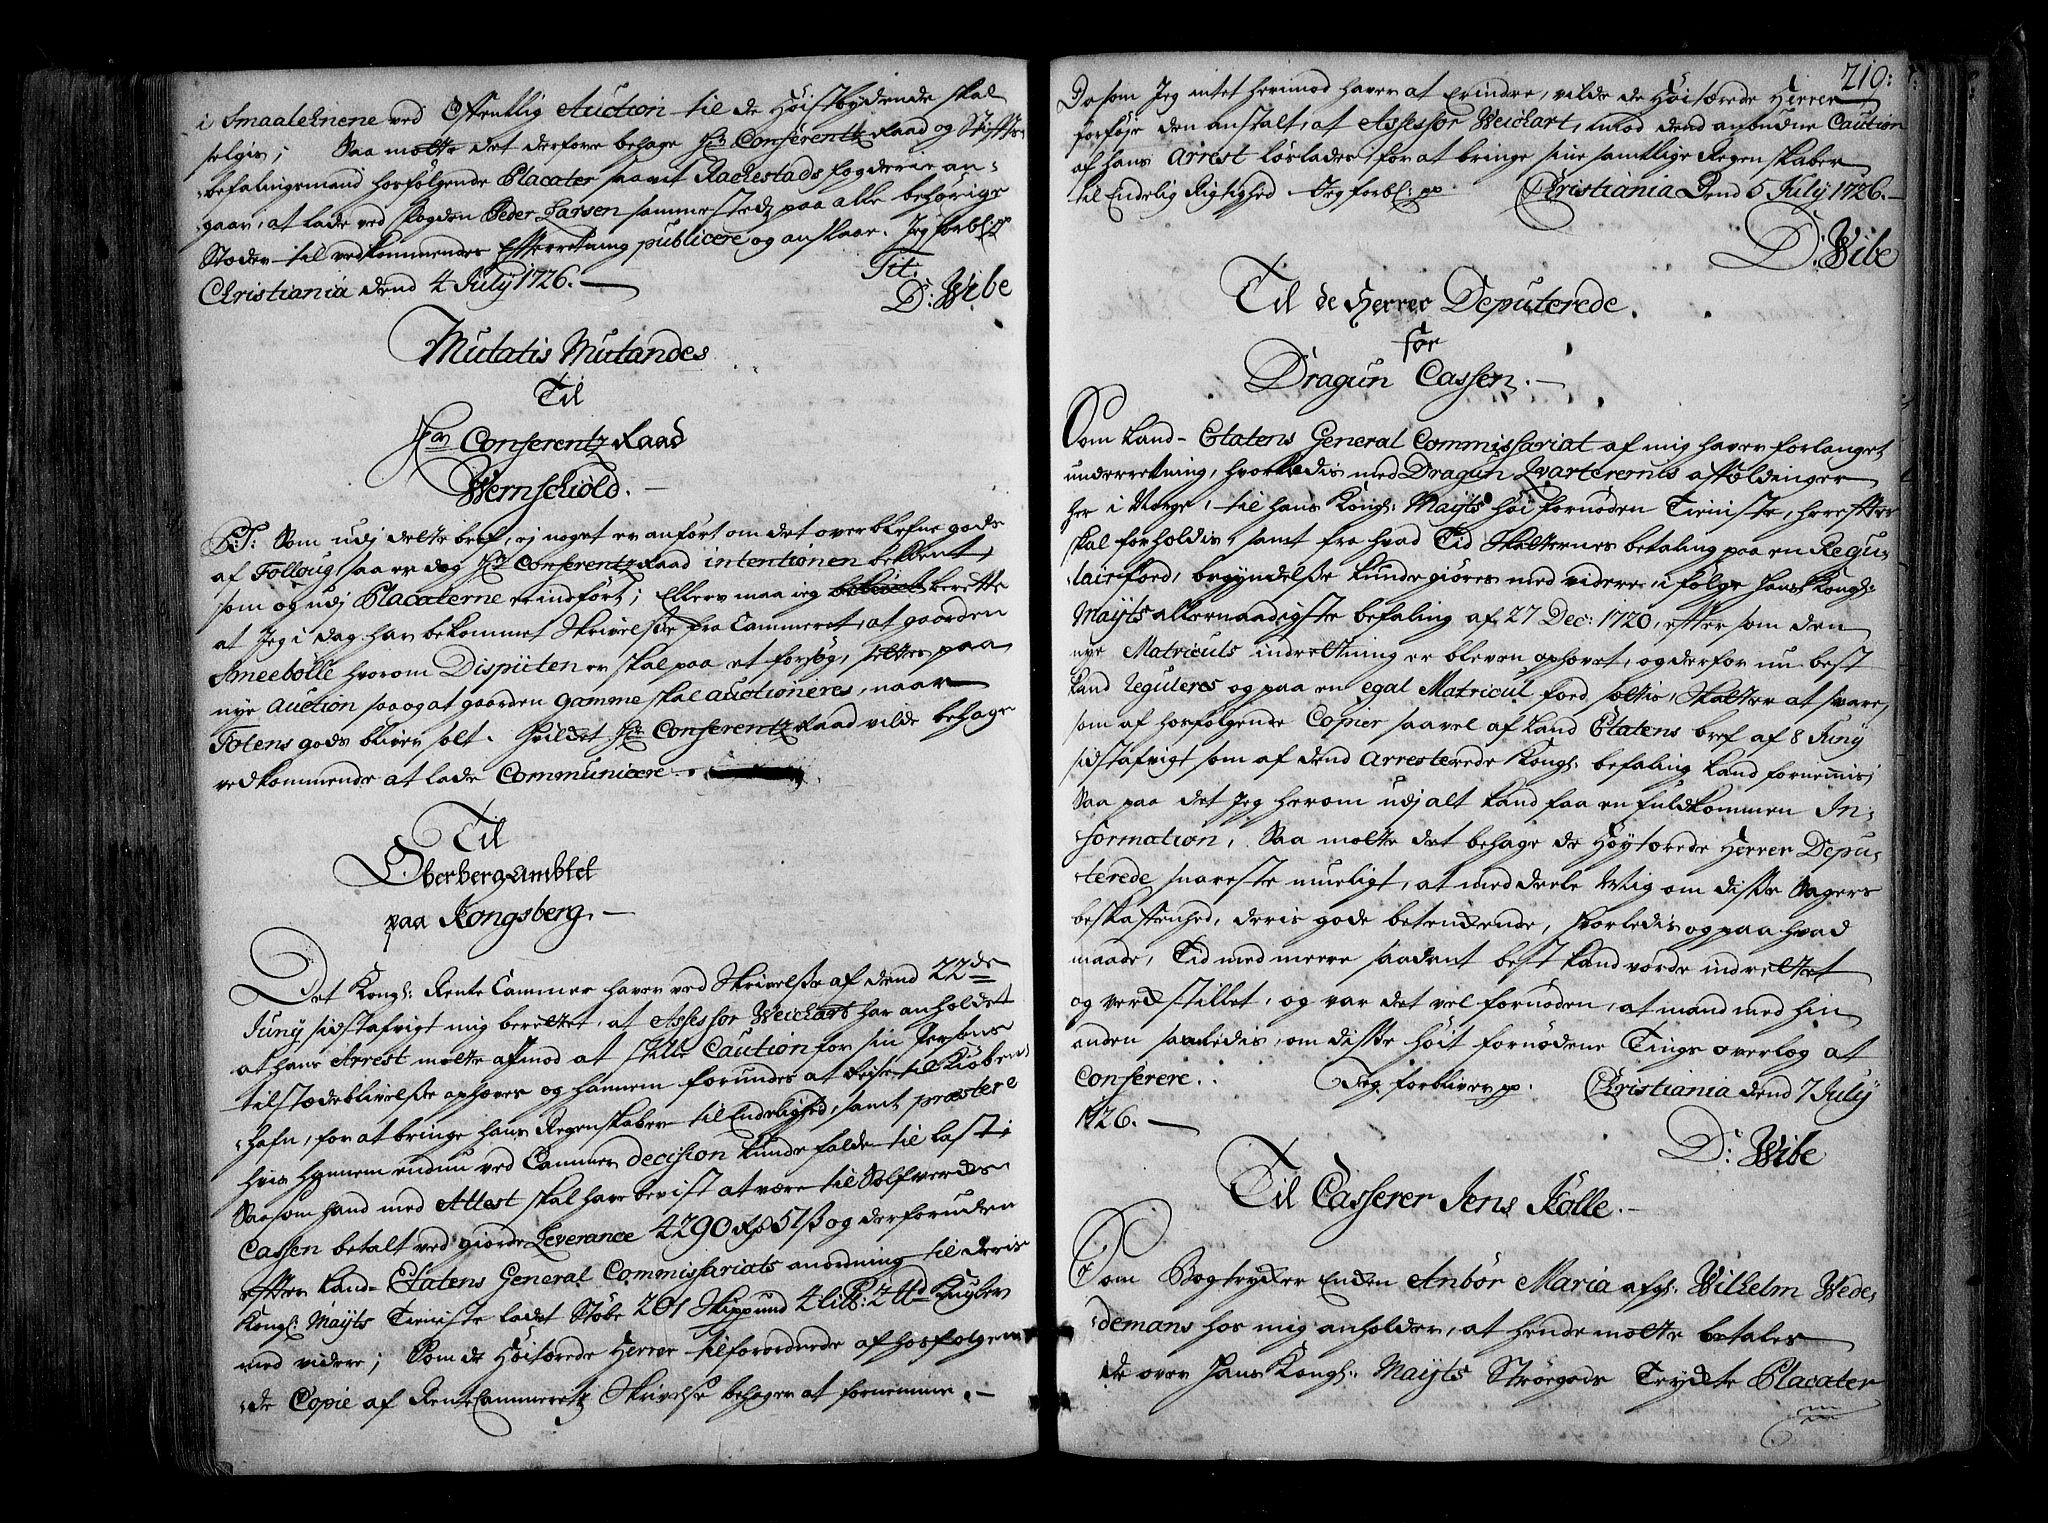 i Smaalehnene ved Offentlig Auction til de Høistbydende skal
selgis; Saa motte det derfore behage Hr Conferentz Raad og Stifts
befalingsmand hosfølgende Placater saavit Rachestads fogderie an-
gaar, at lade ved fogden Peder Larsen sammestedz paa alle behørige
Stæder til vedkommendes Efterretning publicere og anslaae. Jeg forbl: pp
Tit:
Christiania dend 4 July 1726.
D: Wibe
Mutatis Mutandes
Til
Hr Conferentz Raad
Wernschiold.
P:S: Som udj dette bref, ej noget er anført om det overblefne gods
af Folloug, saa er dog Hr Conferentz Raad intentionen bekient,
som og udj Placaterne er indført; Ellers maa ieg berette
at Jeg i dag har bekommet Skrivelse fra Cammeret, at gaarden
Smeebølle hvorom Disputen er skal paa et forsøg, settes paa
nye Auction saa og at gaarden Gamme skal auctioneres, naar
Totens gods bliver solt. Hvildet Hr Conferentz Raad vilde behage
vedkommende at lade Communicere.
Til
Oberbergambtet
paa Kongsberg.
Det Kongl: Rente Cammer haver ved Skrivelse af dend 22de
Juny sidstafvigt mig berettet, at Assessor Weichart har anholdet
at hans Arrest motte afmod at stille Caution for sin Persons
tilstædeblivelse ophæves og hannem forundes at Reise til Kiøben-
hafn, for at bringe hans Regenskaber til Endelighed, samt præstere
hvis hannem endnu ved Cammer decision kunde falde til last;
Saasom hand med Attest skal have bevist at være til Sølfverks
Cassen betalt ved giorde Leverance 4290 Rd 51 s og derforuden
efter Land-Etatens General Commissariats anordning til deris
Kongl: Mayts Tieniste ladet Støbe 201 Skippund 4 Lis: 2 td Kugler
med videre; Som de Høitærede Herrer tilforordnede af hosfølgen-
de Copie af Rente Cammeretz Skrivelse behager at fornemme.
210:
Da som Jeg intet herimod haver at Erindre, vilde de Høitærede Herrer
forføje den anstalt, at Assessor Weichart, imod dend anbudne Caution
af hans Arrest løslades, for at bringe sine samtlige Regenskaber
til Endelig Rigtighed Jeg forbl: pp Christiania Dend 5 July 1726.
D: Wibe
Til de Herrer Deputerede
for
Dragun Cassen.
Som Land-Etatens General Commissariat af mig haver forlanget
underretning, hvorledis med Dragun Qvarterernis afskoldinger
her i Norge, til hans Kongl: Mayts høi fornøden Tieniste, herefter
skal forholdis, samt fra hvad Tid Skatternes betaling paa en Regu-
lair fod, begyndelse kunde giøres med videre, i følge Hans Kongl:
Mayts allernaadigste befaling af 27 Dec: 1720, eftersom den
nye Matriculs indretning er bleven ophøvet, og derfor nu best
kand reguleres og paa en egal Matricul fod settis, Skatter at svare,
som af hosfølgende Copier saavel af Land Etatens bref af 8 Juny
sidstafvigt som af dend arresterede Kongl: befaling kand fornemmis;
Saa paa det Jeg herom udj alt kand faa en fuldkommen In-
formation, Saa motte det behage de Høytærede Herrer Depu-
terede snareste mueligt, at meddeele Mig om disse Sagers
beskaffenhed, deris gode betenkende, hvorledis og paa hvad
maade, Tid med meere saadant best kand vorde indrettet
og verkstillet, og var det vel fornøden, at mand med hin
anden saaledis, om disse høit fornødene Tings overlog at
Conferere. Jeg forbliver pp. Christiania dend 7 July
1726.
D: Wibe
Til Casserer Jens Kølle.
Som Bogtrycker Enken Anbør Maria afgl: Wilhelm Wede-
demans hos mig anholder, at hende motte betales
de over Hans Kongl: Mayts Strøegods Trykte Placater